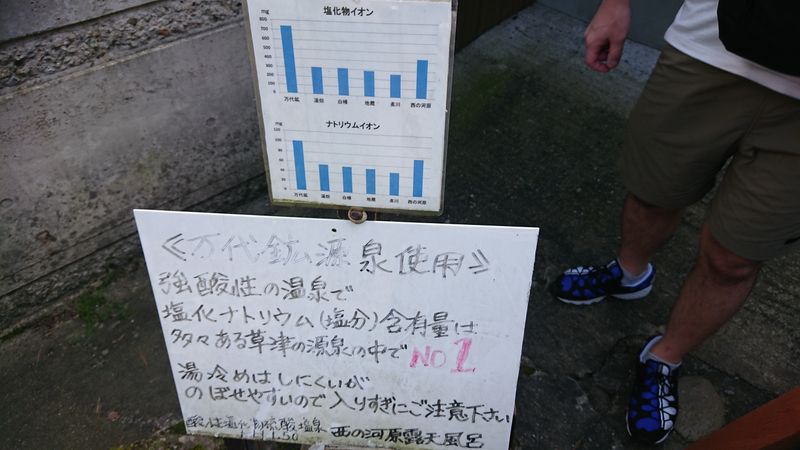 塩化物イオン
mg
800
700
600
500
400
300
200
100
0
万代鉱 湯畑 白旗 地蔵 煮川 西の河原
ナトリウムイオン
mg
120
100
80
60
40
20
0
万代鉱 湯畑 白旗 地蔵 煮川 西の河原
≪万代鉱源泉使用≫
強酸性の温泉で
塩化ナトリウム(塩分)含有量は
多々ある草津の源泉の中でNO1
湯冷めはしにくいが
のぼせやすいので入りすぎにご注意下さい
硫酸塩泉
1.50 西の河原露天風呂